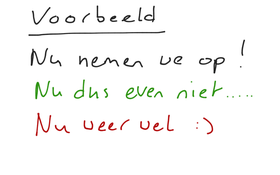 Voorbeeld
Nu nemen we op!
Nu dus even niet.....
Nu weer wel :)